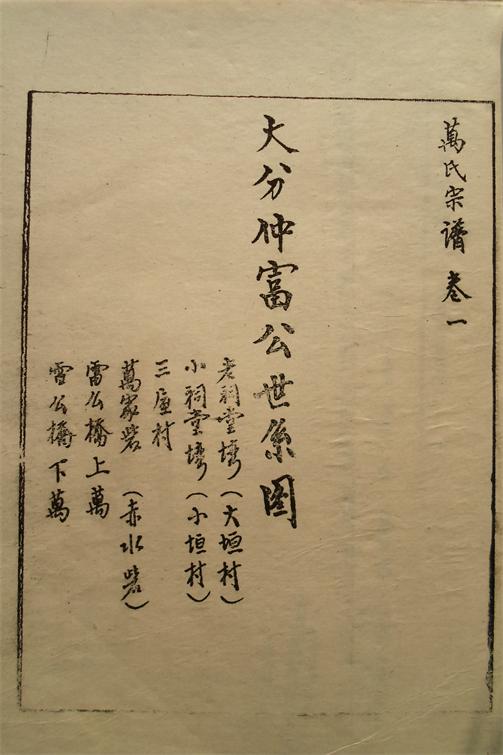 萬氏宗譜 卷一
大分仲富公世系图
老祠堂塆（大垣村）
小祠堂塆（小垣村）
三屋村
萬家砦（赤水砦）
雷公橋上萬
雷公橋下萬